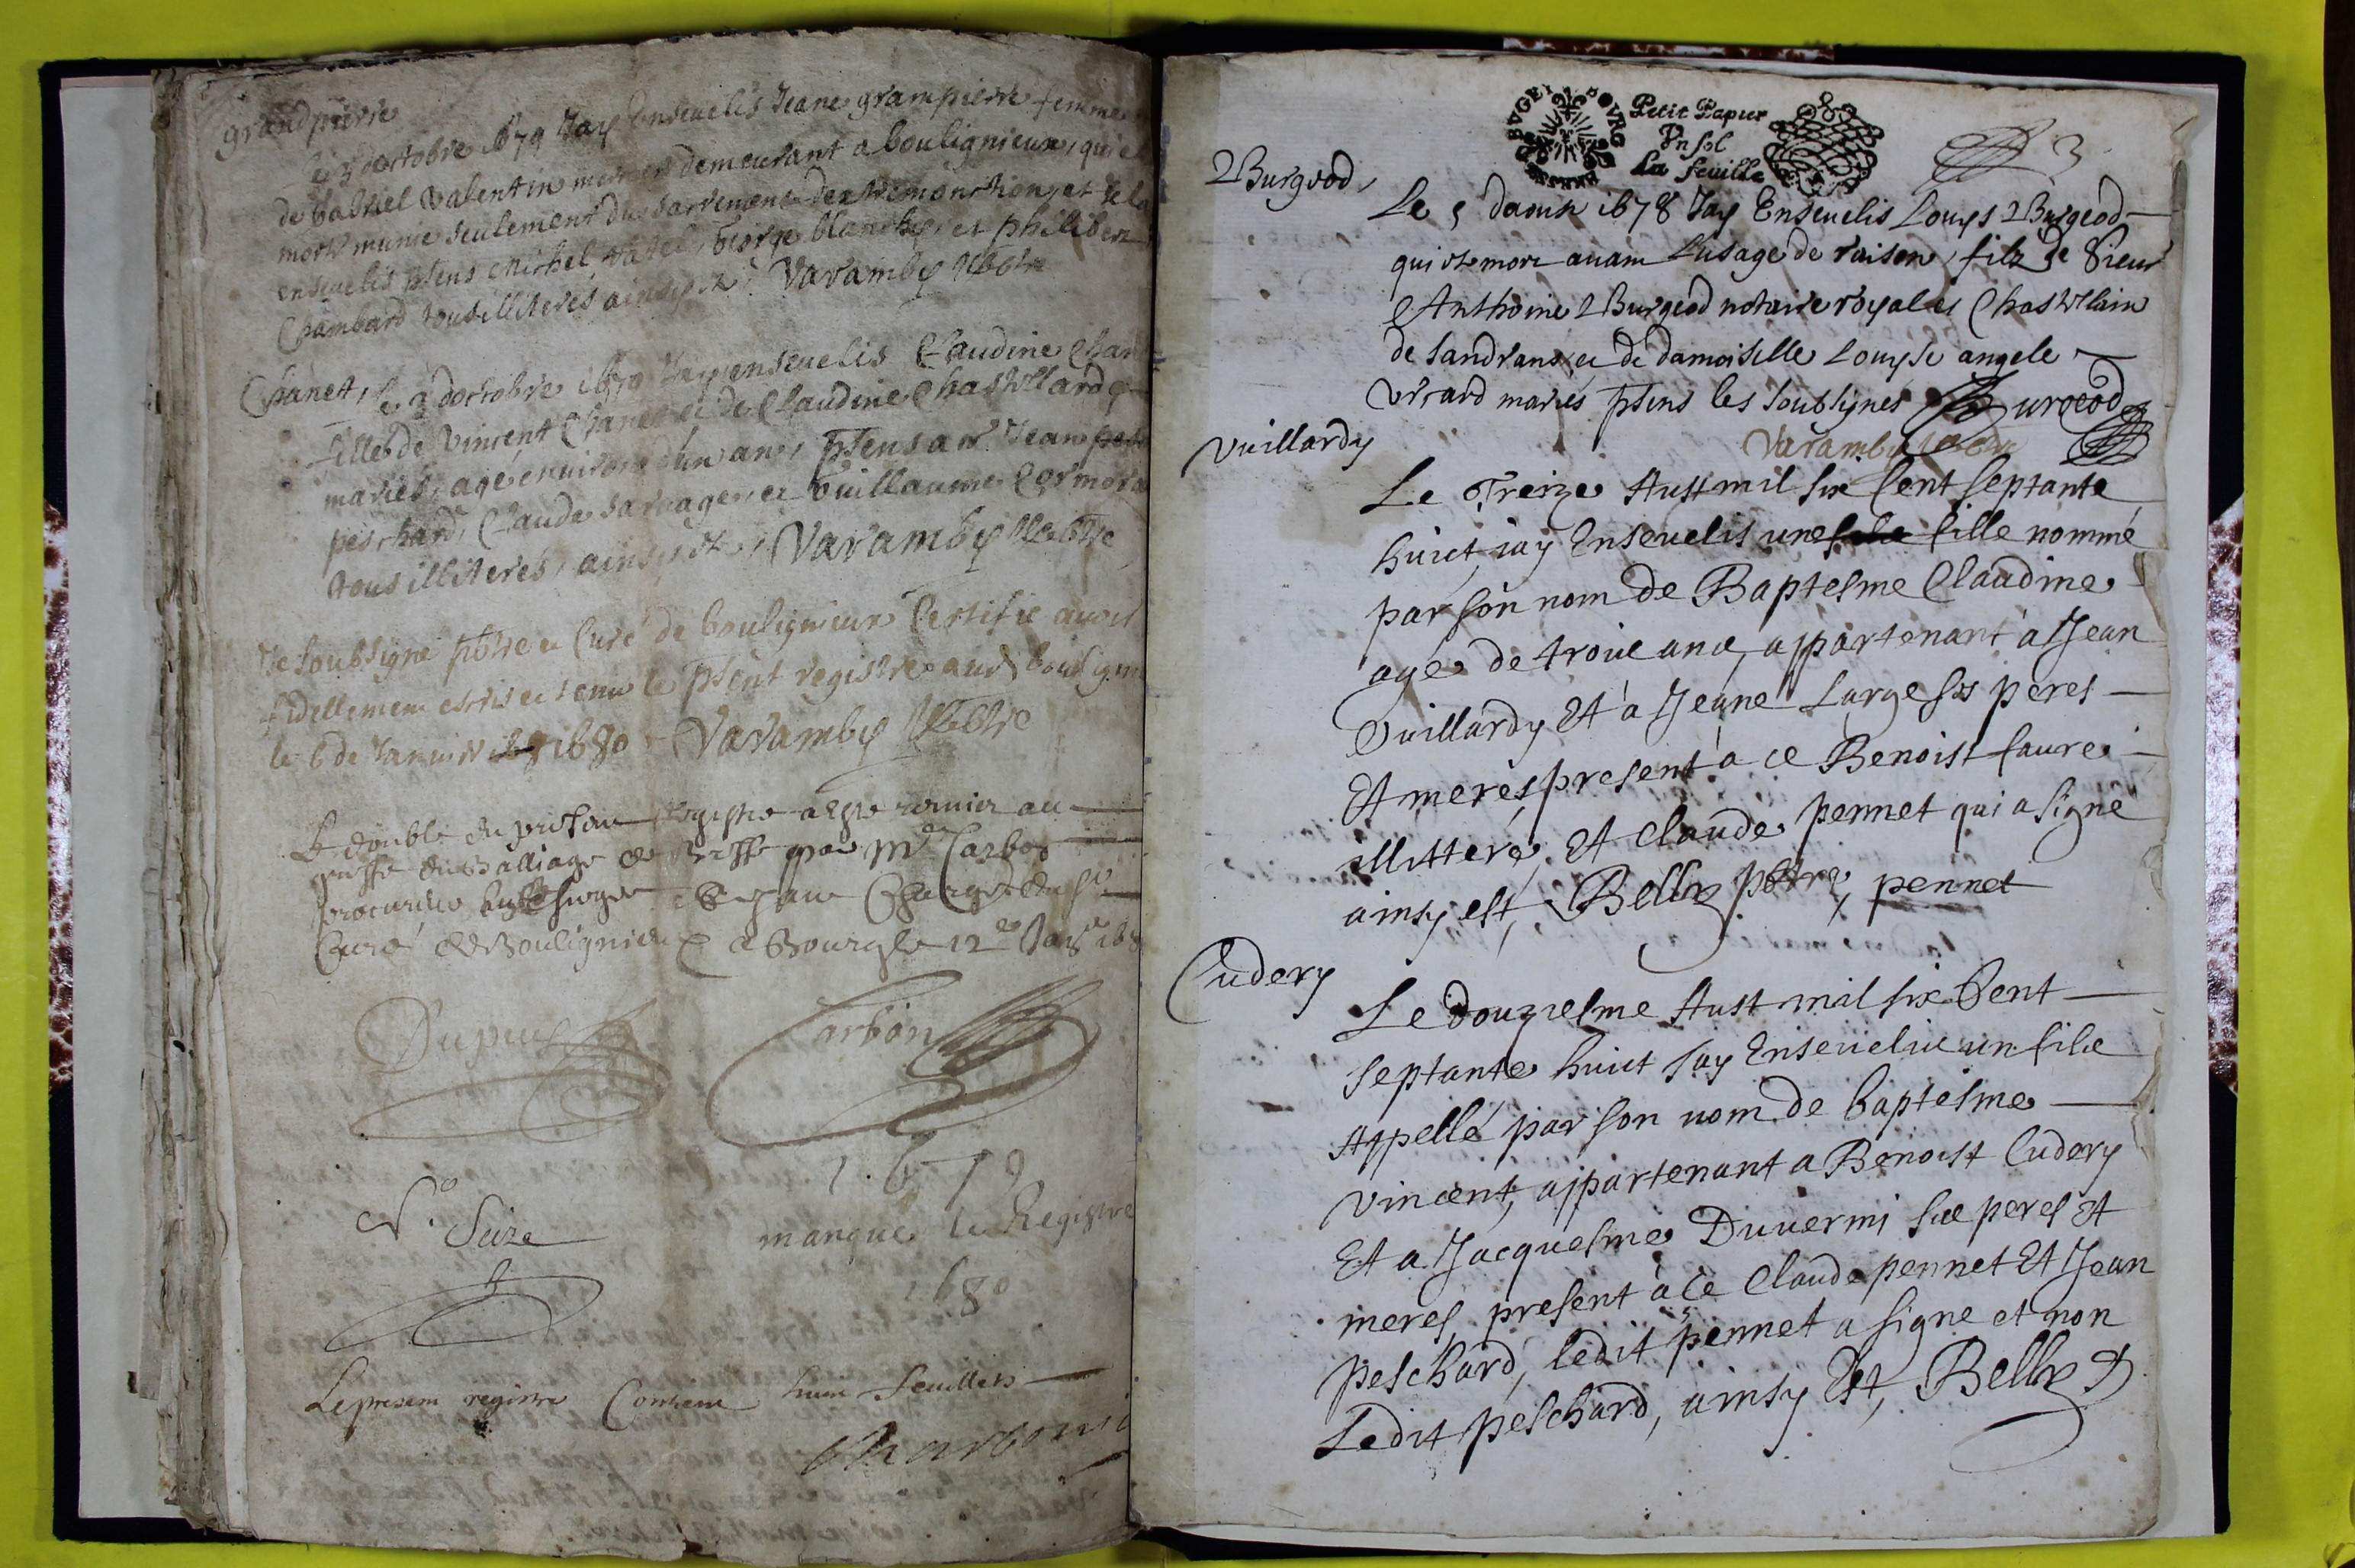 grandpierre
Le 5 octobre 1679 Jay Enseuelis Jeane grampierre femme
de Gabriel Valentin demeurant a boulignieux, qui
morte munie seulement du sacrement et de la
enseuelis pñens Michel George blanchy, et philibert
Chambard tous illiteres ainsy est, Varamby pbtre
Chanet, Le 3 doctobre 1679 Jay enseuelis Claudine Chan
fille de Vincent Chanet et de Claudine Chastellard
mariés, agé enuiron dun an, pñens a ce Jean
peschard, Claude sauuage, et Guillaume Cormora
tous illiterés, ainsy est, Varamby pbtre
Je soubsigné pbtre et Curé de boulignieux Certifie auoir
fidellement escris et tenu le pñent registre aud bouligni
le 6 de Januier 1680 Varamby pbtre
Le double du present Registre a esté remier au
greffe du Balliage de Bresse par Mre Carbon
procureur au siege Charge du sr
Curé de Boulignieux a Bourg le 12e Janr 168
Dupuis Carbon
1679
No. Seize manque le Registre
1680
Le present registre Contient huit feuillets
BUGEY BOURG
Petit Papier
Un sol
La feuille
3
Burgeod,
Le 5 daoust 1678 Jay Enseuelis Louys Burgeod
qui est mort auant Lusage de raison, filz de Sieur
Anthoine Burgeod notaire royal et Chastelain
de Sandrans, et de damoiselle Louyse angele
mariés pñens les soubsignes Burgeod
Varamby pbtre
Vuillardy
Le Treize Aust mil six Cent septante
huict, jay Enseuelis une fille nommé
par son nom de Baptesme Claudine
age de troie ans, appartenant a Jean
Vuillardy Et a Jeane Large ses peres
Et meres, present a ce Benoist faure
illitteré, Et Claude pennet qui a signé
ainsy est, Bellz pbtre, pennet
Cudery
Le douziesme Aust mil six Cent
septante huict Jay Enseuelie un filz
Appellé par son nom de baptesme
Vincent, appartenant a Benoist Cudery
Et a Jacquesme Duuermi ses peres Et
meres, present a ce Claude pennet Et Jean
peschard, ledit pennet a signe et non
Ledit peschard, ainsy Est, Bellz